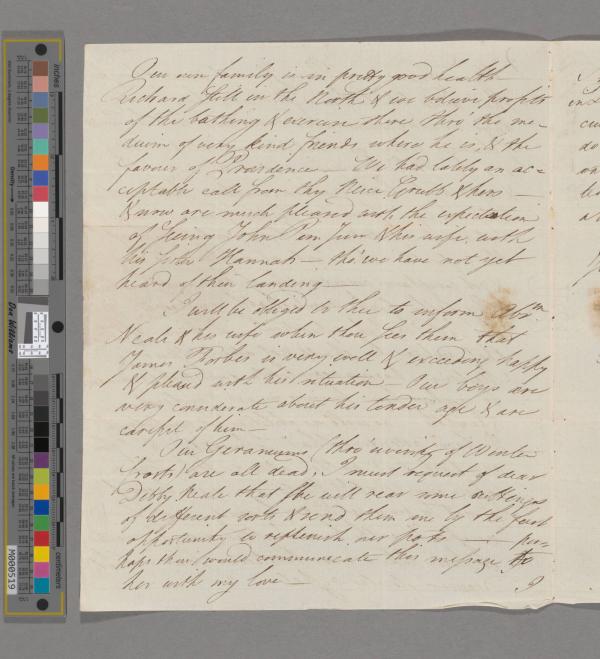 Our own family is in pretty good health —
Richard still in the North & we believe profits
of the bathing & exercise there, thro' the me-
dium of very kind friends where he is, & the
favour of Providence — We had lately an ac=
ceptable call from thy Niece & hers —
& now are much pleased with the expectation
of seeing John Jun. & his wife, with
his sister Hannah — tho' we have not yet
heard of their landing —
I will be obliged to thee to inform Abrm.
Neale & his wife when thou sees them that
James Forbes is very well & exceeding happy
& pleased with his situation — Our boys are
very considerate about his tender age & are
careful of him —
Our Geraniums (thro' severity of Winter
frosts) are all dead, I must request of dear
Debby Neale that she will rear some cuttings
of different sorts & send them me by the first
opportunity to replenish our pots — per-
haps thou would communicate this message to
her with my love —
I
inches
centimetres
M000519